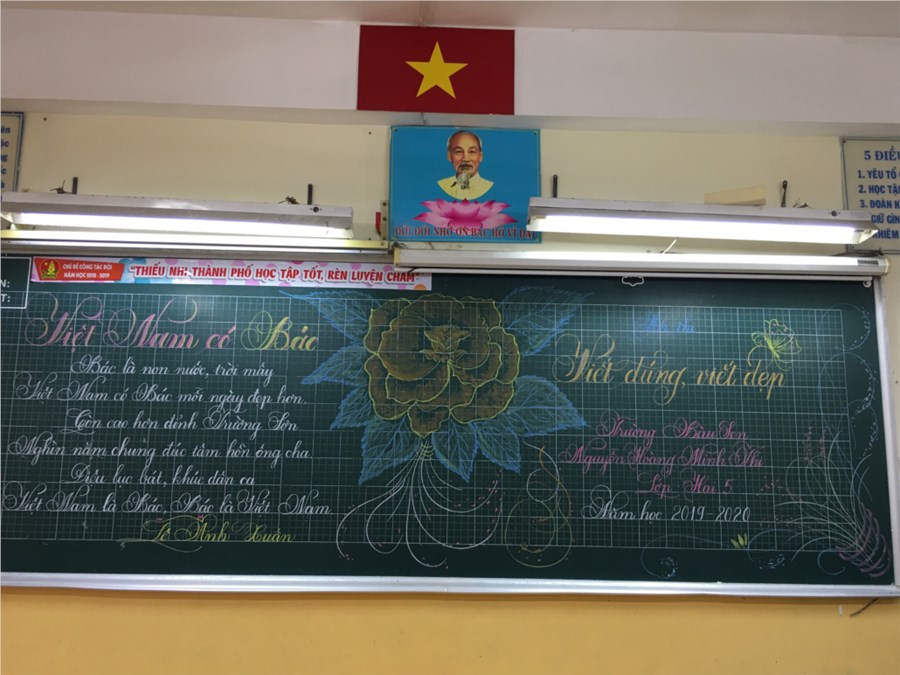 5 ĐIỀU
1. YÊU TỔ
2. HỌC TẬ
3. ĐOÀN K
GIỮ GÌN
KHIÊM
ĐỜI ĐỜI NHỚ ƠN BÁC HỒ VĨ ĐẠI
CHỦ ĐỀ CÔNG TÁC ĐỘI
NĂM HỌC 2018 - 2019
"THIẾU NHI THÀNH PHỐ HỌC TẬP TỐT, RÈN LUYỆN CHĂM"
N:
T:
Việt Nam có Bác
Bác là non nước, trời mây
Việt Nam có Bác mỗi ngày đẹp hơn.
Còn cao hơn đỉnh Trường Sơn
Nghìn năm chung đúc tâm hồn ông cha.
Điệu lục bát, khúc dân ca
Việt Nam là Bác, Bác là Việt Nam
Lê Anh Xuân
Viết đúng, viết đẹp
Trường Bàu Sen
Nguyễn Hoàng Minh Nhi
Lớp Hai 5
Năm học 2019-2020